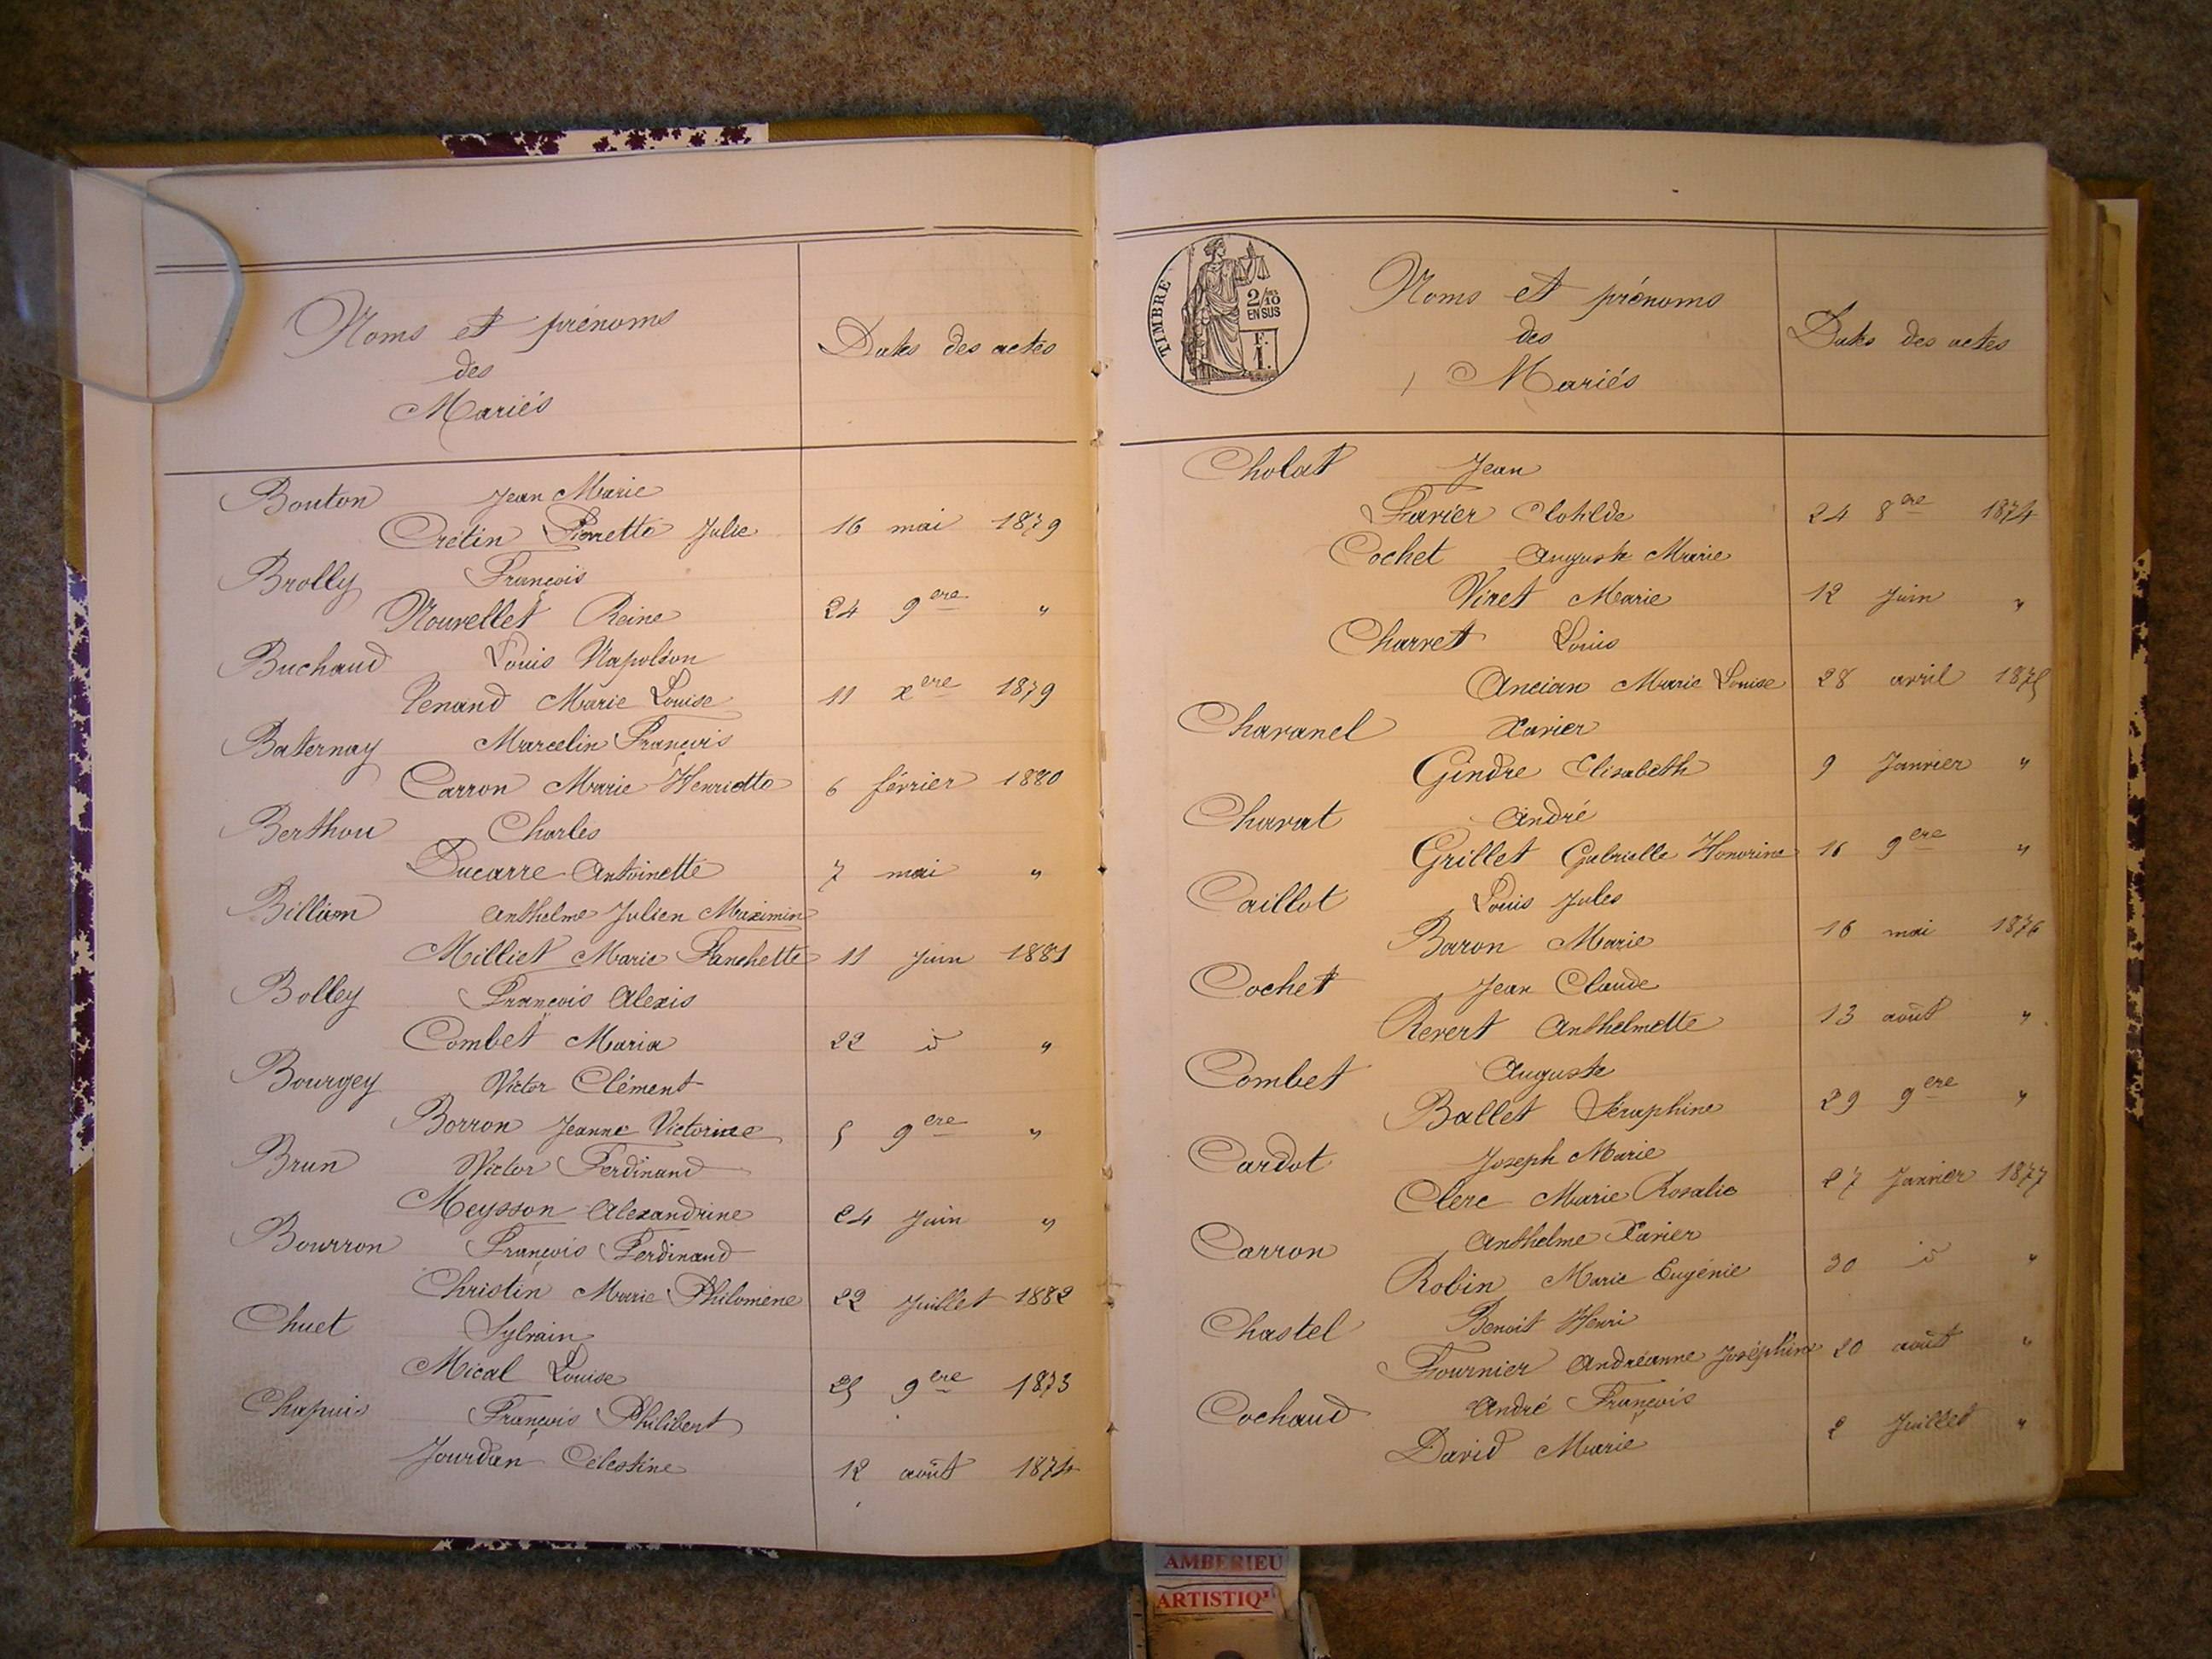 Noms et prénoms
des
Mariés
Dates des actes
Bouton Jean Marie
Crétin Pierrette Julie 16 mai 1879
Brolly François
Nouvellet Reine 24 9ere "
Buchaud Louis Napoléon
Penand Marie Louise 11 Xere 1879
Baternay Marcelin François
Carron Marie Henriette 6 février 1880
Berthou Charles
Ducarre Antoinette 7 mai "
Billion Anthelme Julien Maximin
Milliet Marie Fanchette 11 Juin 1881
Bolley François Alexis
Combet Maria 22 id "
Bourgey Victor Clément
Borron Jeanne Victorine 5 9ere "
Brun Victor Ferdinand
Meysson Alexandrine 24 Juin "
Bourron François Ferdinand
Christin Marie Philomène 22 Juillet 1882
Chuet Sylvain
Mical Louise 25 9ere 1873
Chapuis François Philibert
Jourdan Célestine 12 août 1874
TIMBRE
2/10 ES
EN SUS
F.
1.
Noms et prénoms
des
Mariés
Dates des actes
Cholat Jean
Favier Clotilde 24 8ere 1874
Cochet Auguste Marie
Viret Marie 12 Juin "
Charvet Louis
Ancian Marie Louise 28 avril 1875
Chavanel Xavier
Gindre Elisabeth 9 Janvier "
Chavat André
Grillet Gabrielle Honorine 16 9ere "
Caillot Louis Jules
Baron Marie 16 mai 1876
Cochet Jean Claude
Revert Anthelmette 13 août "
Combet Auguste
Ballet Séraphine 29 9ere "
Cardot Joseph Marie
Clerc Marie Rosalie 27 Janvier 1877
Carron Anthelme Xavier
Robin Marie Eugénie 30 id "
Chastel Benoit Henri
Fournier Andréanne Joséphine 20 août "
Cochaud André François
David Marie 2 Juillet "
AMBERIEU
ARTISTIQU